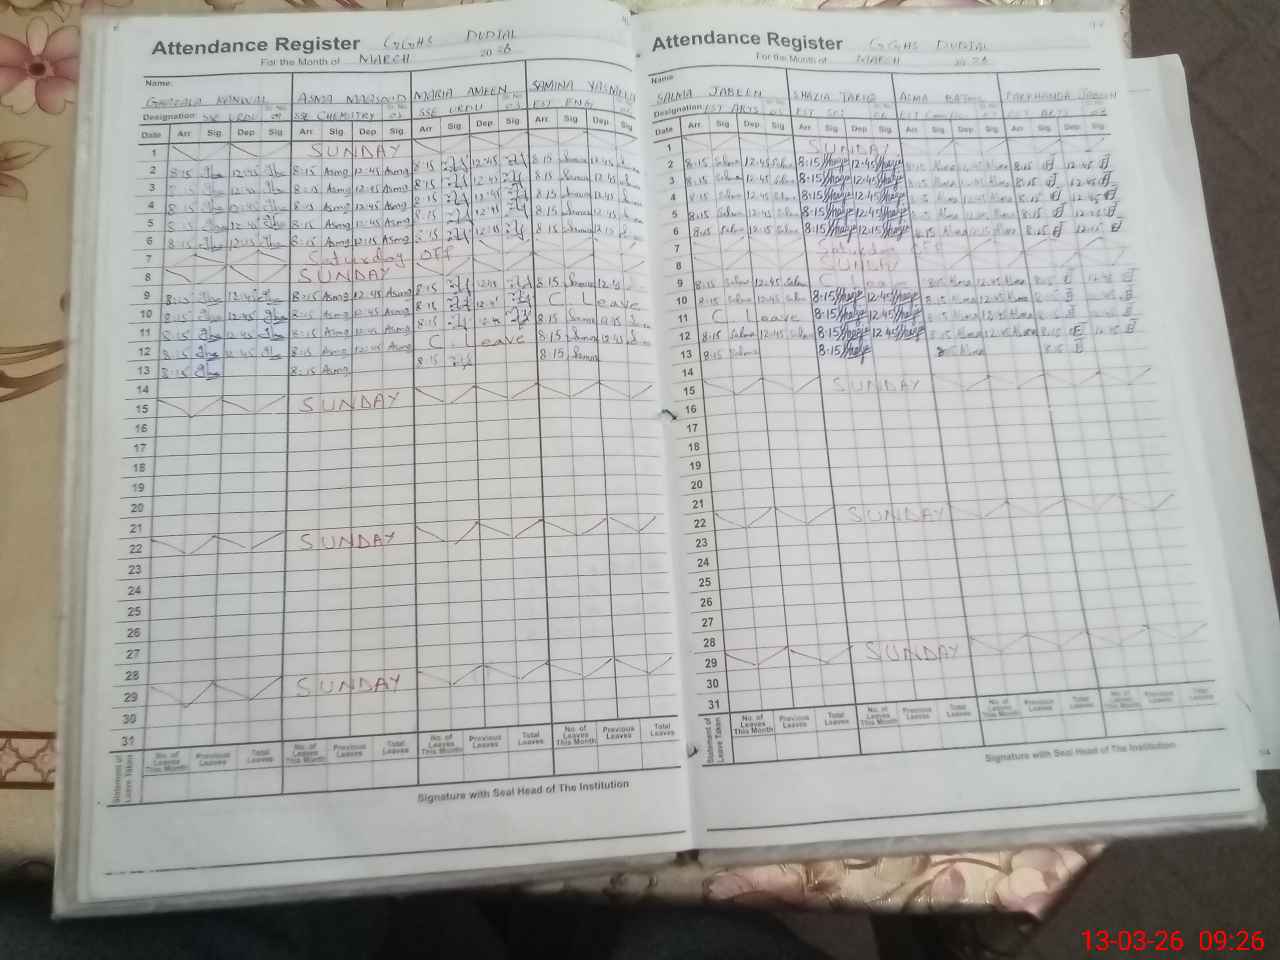 Attendance Register GGHS DUDIAL
For the Month of MARCH 2026
Name:
GHAZALA KANWAL ASMA MAQSOOD MARIA AMEEN SAMINA YASMEEN
Designation: SSE URDU SSE CHEMISTRY SSE URDU EST ENG
Date Arr. Sig. Dep. Sig. Arr. Sig. Dep. Sig. Arr. Sig. Dep. Sig. Arr. Sig. Dep. Sig.
1 SUNDAY
2 8:15 12:45 8:15 Asma 12:45 Asma 8:15 12:45 8:15 Samina 12:45
3 8:15 12:45 8:15 Asma 12:45 Asma 8:15 12:45 8:15 Samina 12:45
4 8:15 12:45 8:15 Asma 12:45 Asma 8:15 12:45 8:15 Samina 12:45
5 8:15 12:45 8:15 Asma 12:45 Asma 8:15 12:45 8:15 Samina 12:45
6 8:15 12:15 8:15 Asma 12:15 Asma 8:15 12:15 8:15 Samina 12:15
7 Saturday OFF
8 SUNDAY
9 8:15 12:45 8:15 Asma 12:45 Asma 8:15 12:45 8:15 Samina 12:45
10 8:15 12:45 8:15 Asma 12:45 Asma 8:15 12:45 C Leave
11 8:15 12:45 8:15 Asma 12:45 Asma 8:15 12:45 8:15 Samina 12:45
12 8:15 12:45 8:15 Asma 12:45 Asma C. Leave 8:15 Samina 12:45
13 8:15 8:15 Asma 8:15 8:15 Samina
14
15 SUNDAY
16
17
18
19
20
21
22 SUNDAY
23
24
25
26
27
28
29 SUNDAY
30
31
Statement of Leave Taken
No. of Leaves This Month Previous Leaves Total Leaves No. of Leaves This Month Previous Leaves Total Leaves No. of Leaves This Month Previous Leaves Total Leaves No. of Leaves This Month Previous Leaves Total Leaves
Signature with Seal Head of The Institution
Attendance Register GGHS DUDIAL
For the Month of MARCH 2026
Name
SALMA JABEEN SHAZIA TARIQ ALMA BATOOL FARKHANDA JABEEN
Designation EST ARTS EST SCI EST EST ARTS
Date Arr. Sig. Dep. Sig. Arr. Sig. Dep. Sig. Arr. Sig. Dep. Sig. Arr. Sig. Dep. Sig.
1 SUNDAY
2 8:15 Salma 12:45 Salma 8:15 Shazia 12:45 Shazia 8:15 Alma 12:45 Alma 8:15 12:45
3 8:15 Salma 12:45 Salma 8:15 Shazia 12:45 Shazia 8:15 Alma 12:45 Alma 8:15 12:45
4 8:15 Salma 12:45 Salma 8:15 Shazia 12:45 Shazia 8:15 Alma 12:45 Alma 8:15 12:45
5 8:15 Salma 12:45 Salma 8:15 Shazia 12:45 Shazia 8:15 Alma 12:45 Alma 8:15 12:45
6 8:15 Salma 12:15 Salma 8:15 Shazia 12:15 Shazia 8:15 Alma 12:15 Alma 8:15 12:15
7 Saturday OFF
8 SUNDAY
9 8:15 Salma 12:45 Salma C Leave 8:15 Alma 12:45 Alma 8:15 12:45
10 8:15 Salma 12:45 Salma 8:15 Shazia 12:45 Shazia 8:15 Alma 12:45 Alma 8:15 12:45
11 C Leave 8:15 Shazia 12:45 Shazia 8:15 Alma 12:45 Alma 8:15 12:45
12 8:15 Salma 12:45 Salma 8:15 Shazia 12:45 Shazia 8:15 Alma 12:45 Alma 8:15 12:45
13 8:15 Salma 8:15 Shazia Alma 8:15
14
15 SUNDAY
16
17
18
19
20
21
22 SUNDAY
23
24
25
26
27
28
29 SUNDAY
30
31
Statement of Leave Taken
No. of Leaves This Month Previous Leaves Total Leaves No. of Leaves This Month Previous Leaves Total Leaves No. of Leaves This Month Previous Leaves Total Leaves No. of Leaves This Month Previous Leaves Total Leaves
Signature with Seal Head of The Institution
13-03-26 09:26